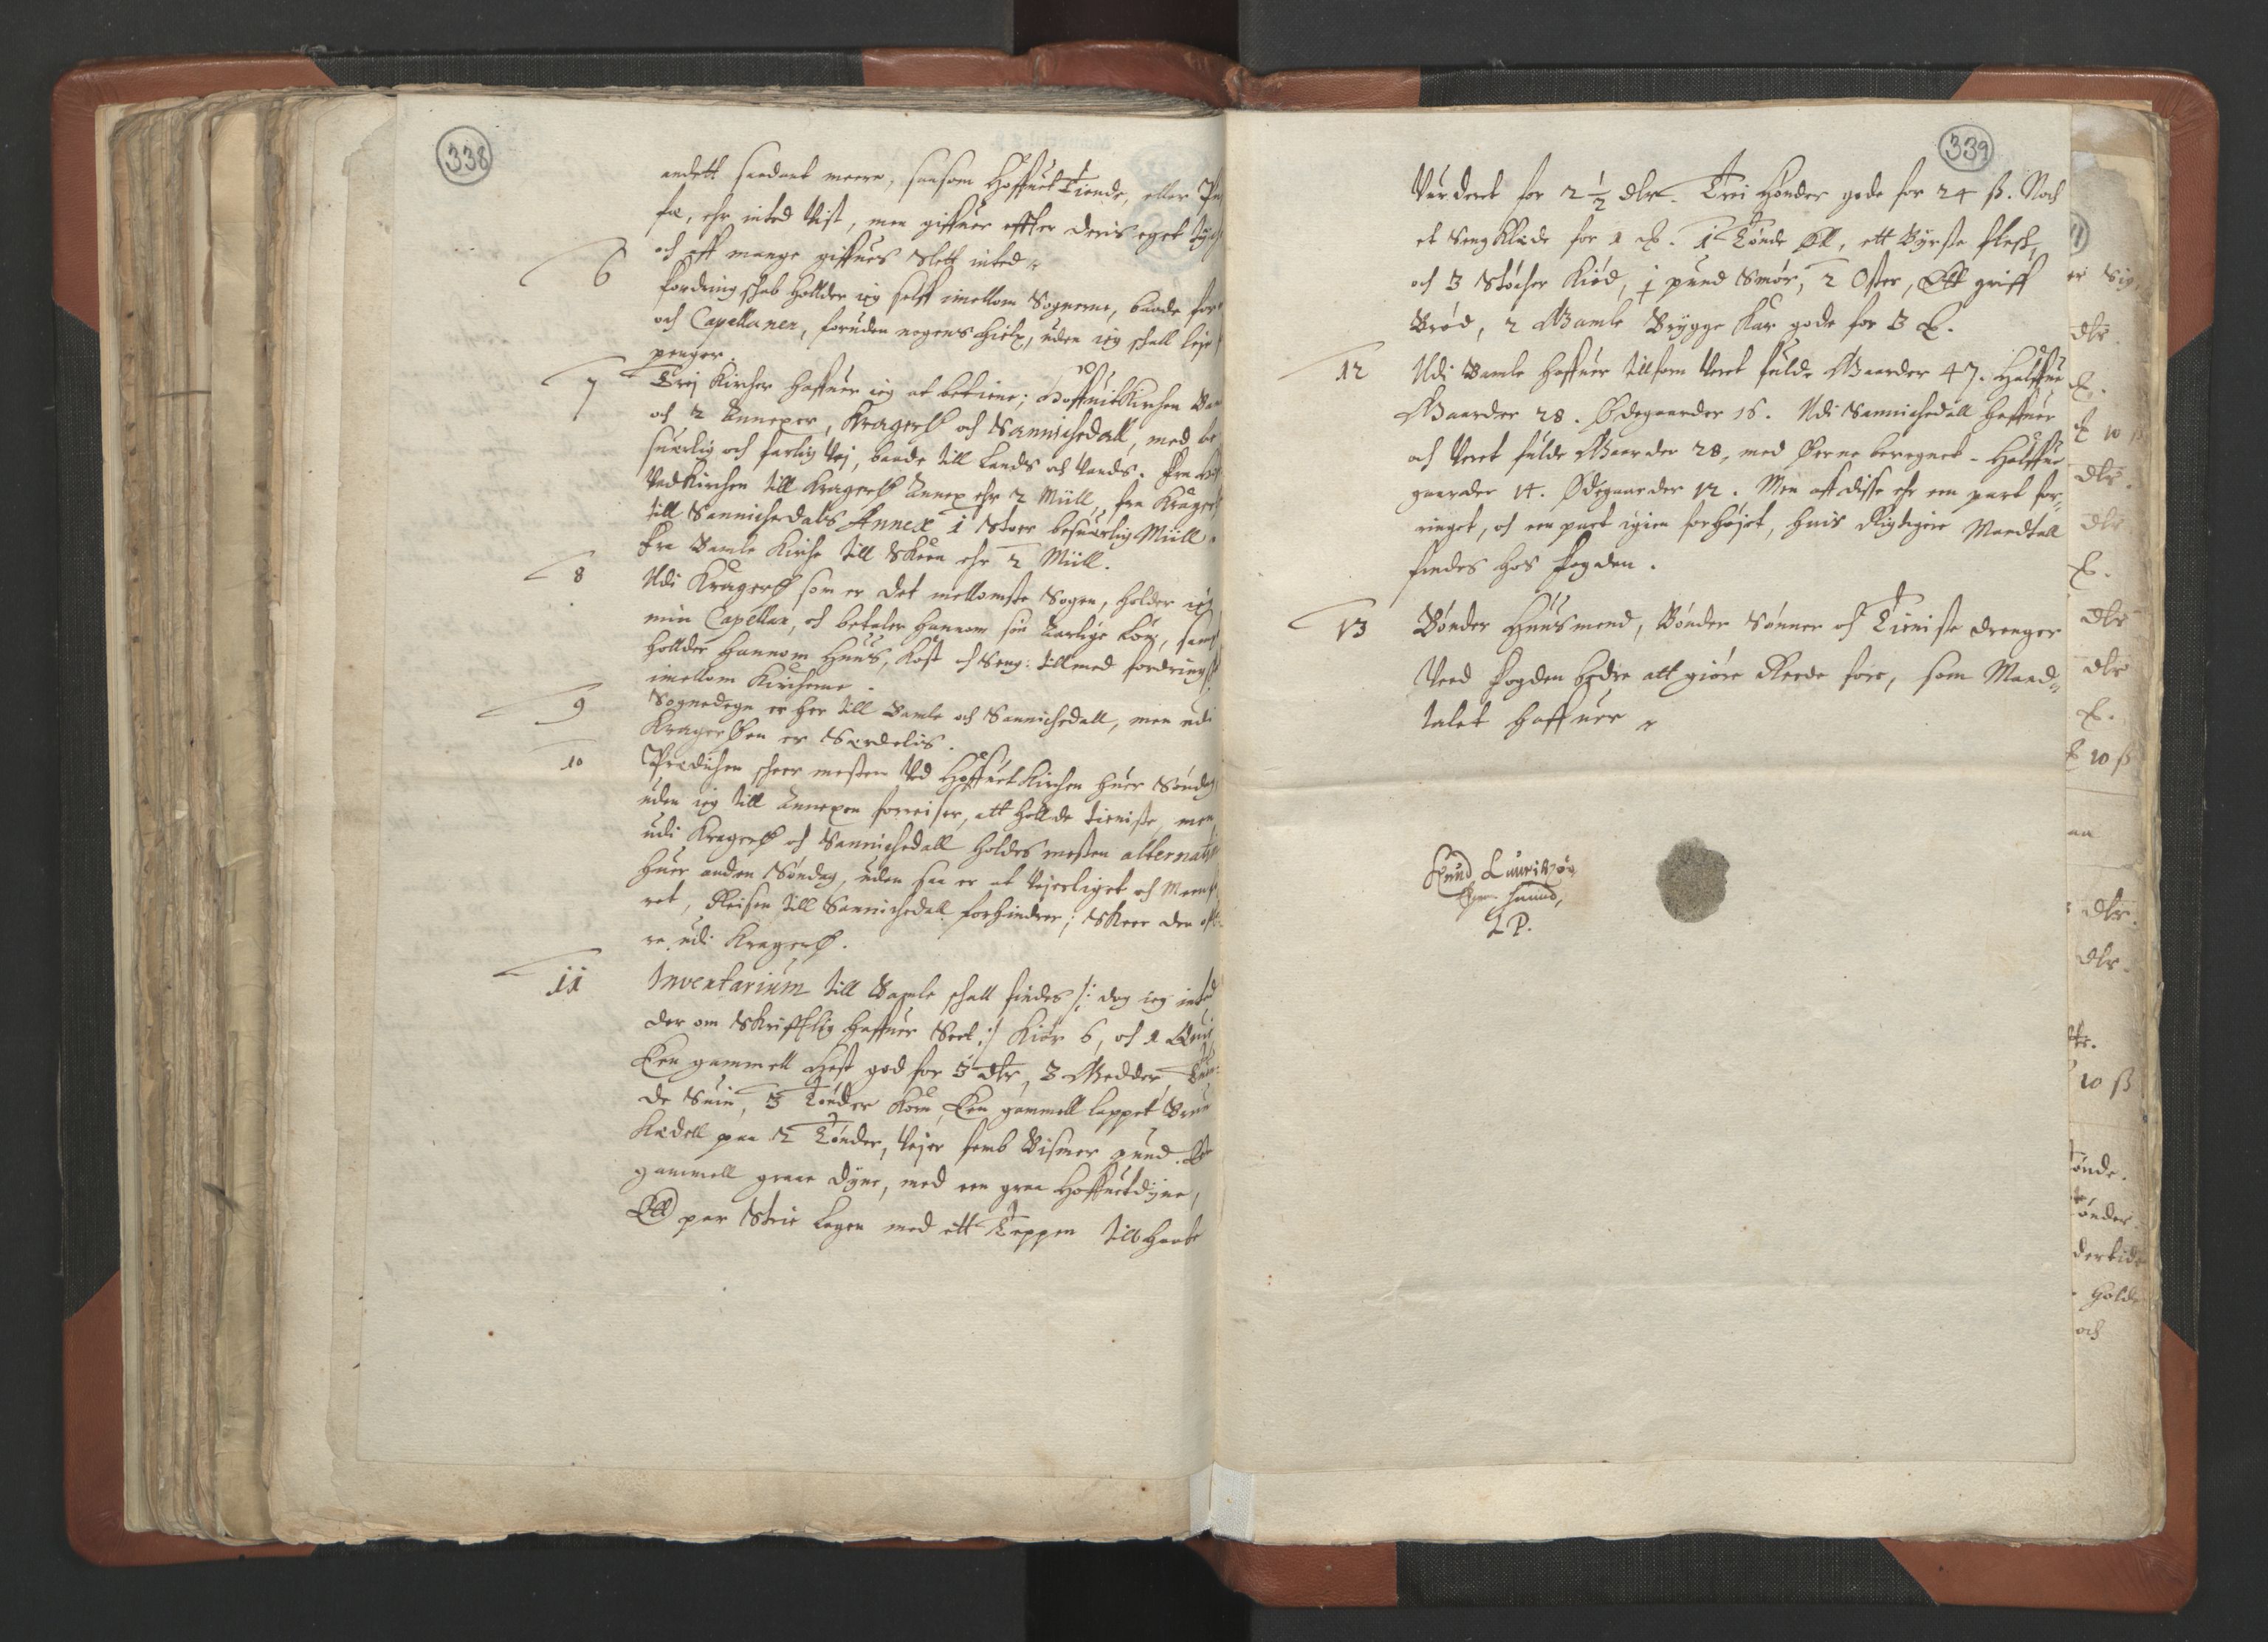 338
andett saadant meere, saasom HoffuetTiende, eller
sæ, ehr inted vist, men giffuer effter deris eget
och aff mange giffues slett inted
6 Fordringschab holder ieg selff imellom Sognerne, baade for
och Capellanen, foruden nogens hielp, uden ieg schall leje
penger.
7 Trej Kircher haffuer ieg at betiene; HoffuitKirchen
och 2 Annexer, Kragerø och Sannichedall, med be
suerlig och farlig vej, baade till Lands och Vands. Fra
vedKirchen till Kragerø Annex ehr 2 Miill, fra Krager
till Sannichedals Annex 1 stoer besuerlig Miill
Fra Bamle Kirche till Skeen ehr 2 Miill.
8 Udi Kragerø som er det mellomste Sogen, holder ieg
min Capellan, och betaler hannom sin Aarlige Løn, samt
hollder hannom Huus, Kost och Seng: tillmed fordring
imellom Kircherne.
9 Sognedegn er her till Bamle och Sannichedall, men udi
Kragerøen er særdelis.
10 Prædichen scheer mesten ved HoffuetKirchen huer Søndag
uden ieg till Annexen forreiser, att hollde tieniste, men
udi Kragerø och Sannichedall holdes mesten alternatim
huer anden Søndag, uden saa er at vejerliget och
ret, Reisen till Sannichedall forhindrer; skeer den
re udi Kragerø.
11 Inventarium till Bamle schall findes /: dog ieg inted
der om skrifftlig haffuer seet :/ Kiør 6, och 1 Qui
Een gammell Hest god for 5 dlr, 3 Bedder,
de Suin, 3 Tønder Korn, Een gammell lappet
Kedell paa 2 Tønder, vejer femb Bismer pund.
gammell graae dyne, med een graa Hoffuetdyne,
Ett par Strie Lagen med ett Teppen till haabe
339
Vurderet for 2 1/2 dlr. Trei Hønder gode for 24 ß. Noch
et SengKlæde for 1 . 1 Tønde Øll, ett Bÿrste Flesk,
och 3 Støcher Kiød, 1 pund Smør, 2 Oster, Ett griff
Brød, 2 Gamle Brygge Kar gode for 3 .
12 Udi Bamle haffuer tillforn veret fulde Gaarder 47. Halffue
Gaarder 28. Ødegaarder 16. Udi Sannichedall haffuer
och veret fulde Gaarder 28, med Øerne beregnet. Halffue
gaarder 14. Ødegaarder 12. Men aff disse ehr een part for
ringet, och een part igien forhøjet, huis Rigtigere Mandtall
findes hos Fogden.
13 Bønder Huusmend, Bønder Sønner och Tieniste drenger
veed Fogden bedre att giøre Reede fore, som Mand
talet haffuer
Knud Lauritzøn
Egen haand,
L P.
dlr.
10 ß
dlr.
dlr
dlr
dlr
10 ß
dlr.
dlr.
10 ß
ønde.
ønder
holde
och